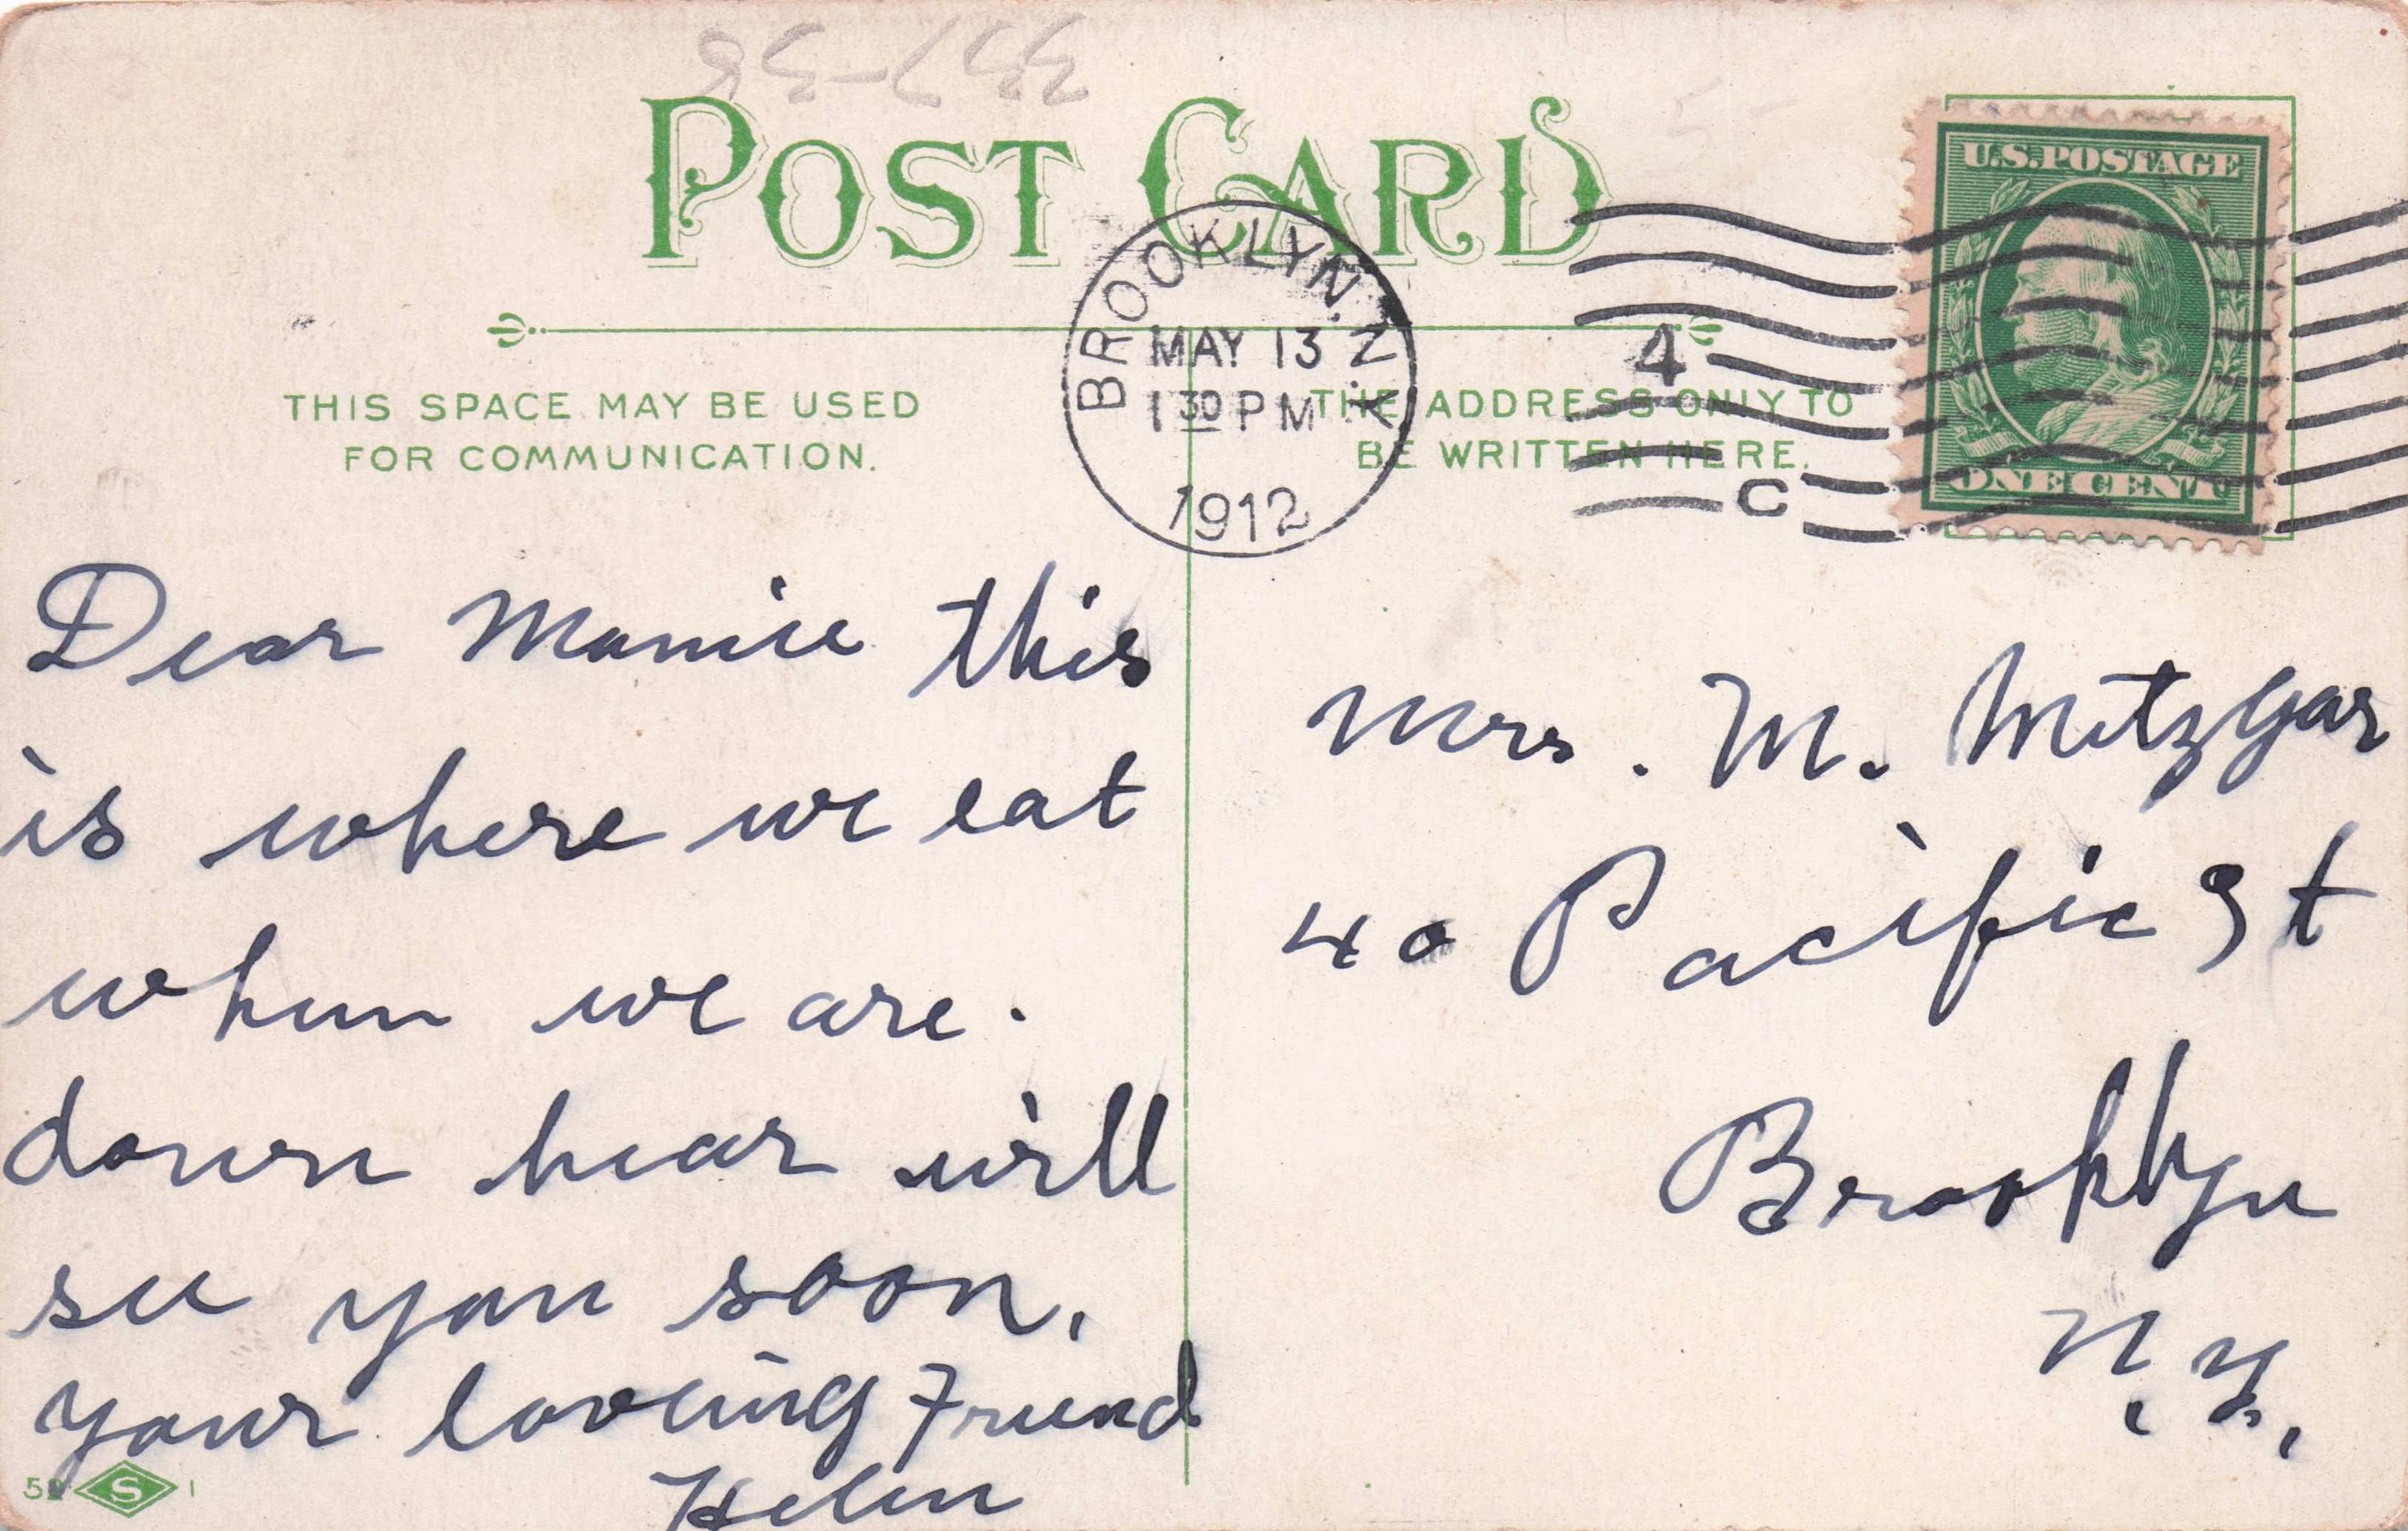 POST CARD
BROOKLYN. N.Y.
MAY 13
1 30 PM
1912
4
C
U.S. POSTAGE
ONE CENT
THIS SPACE MAY BE USED
FOR COMMUNICATION.
THE ADDRESS ONLY TO
BE WRITTEN HERE.
Dear Mamie this
is where we eat
when we are.
down hear will
see you soon,
your loving Friend
Helen
Mrs. M. Metzgar
40 Pacific St
Brooklyn
N.Y.,
S
1